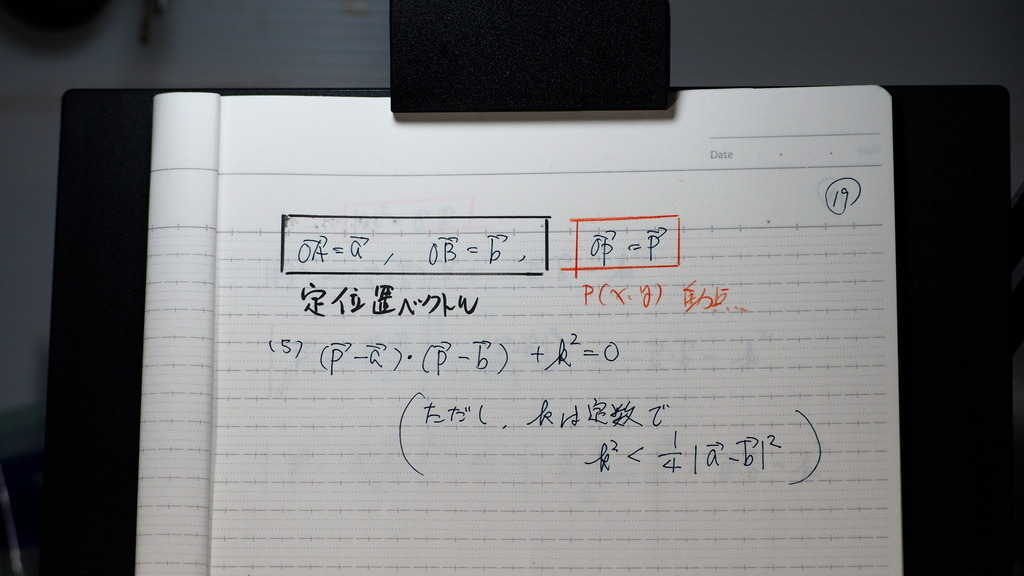 Date
⑲
$\vec{OA} = \vec{a}$ , $\vec{OB} = \vec{b}$ , $\vec{OP} = \vec{P}$
定位置ベクトル P(x, y) 動点
(5) $(\vec{P} - \vec{a}) \cdot (\vec{P} - \vec{b}) + k^2 = 0$
(ただし、kは定数で
$k^2 < \frac{1}{4} |\vec{a} - \vec{b}|^2$ )